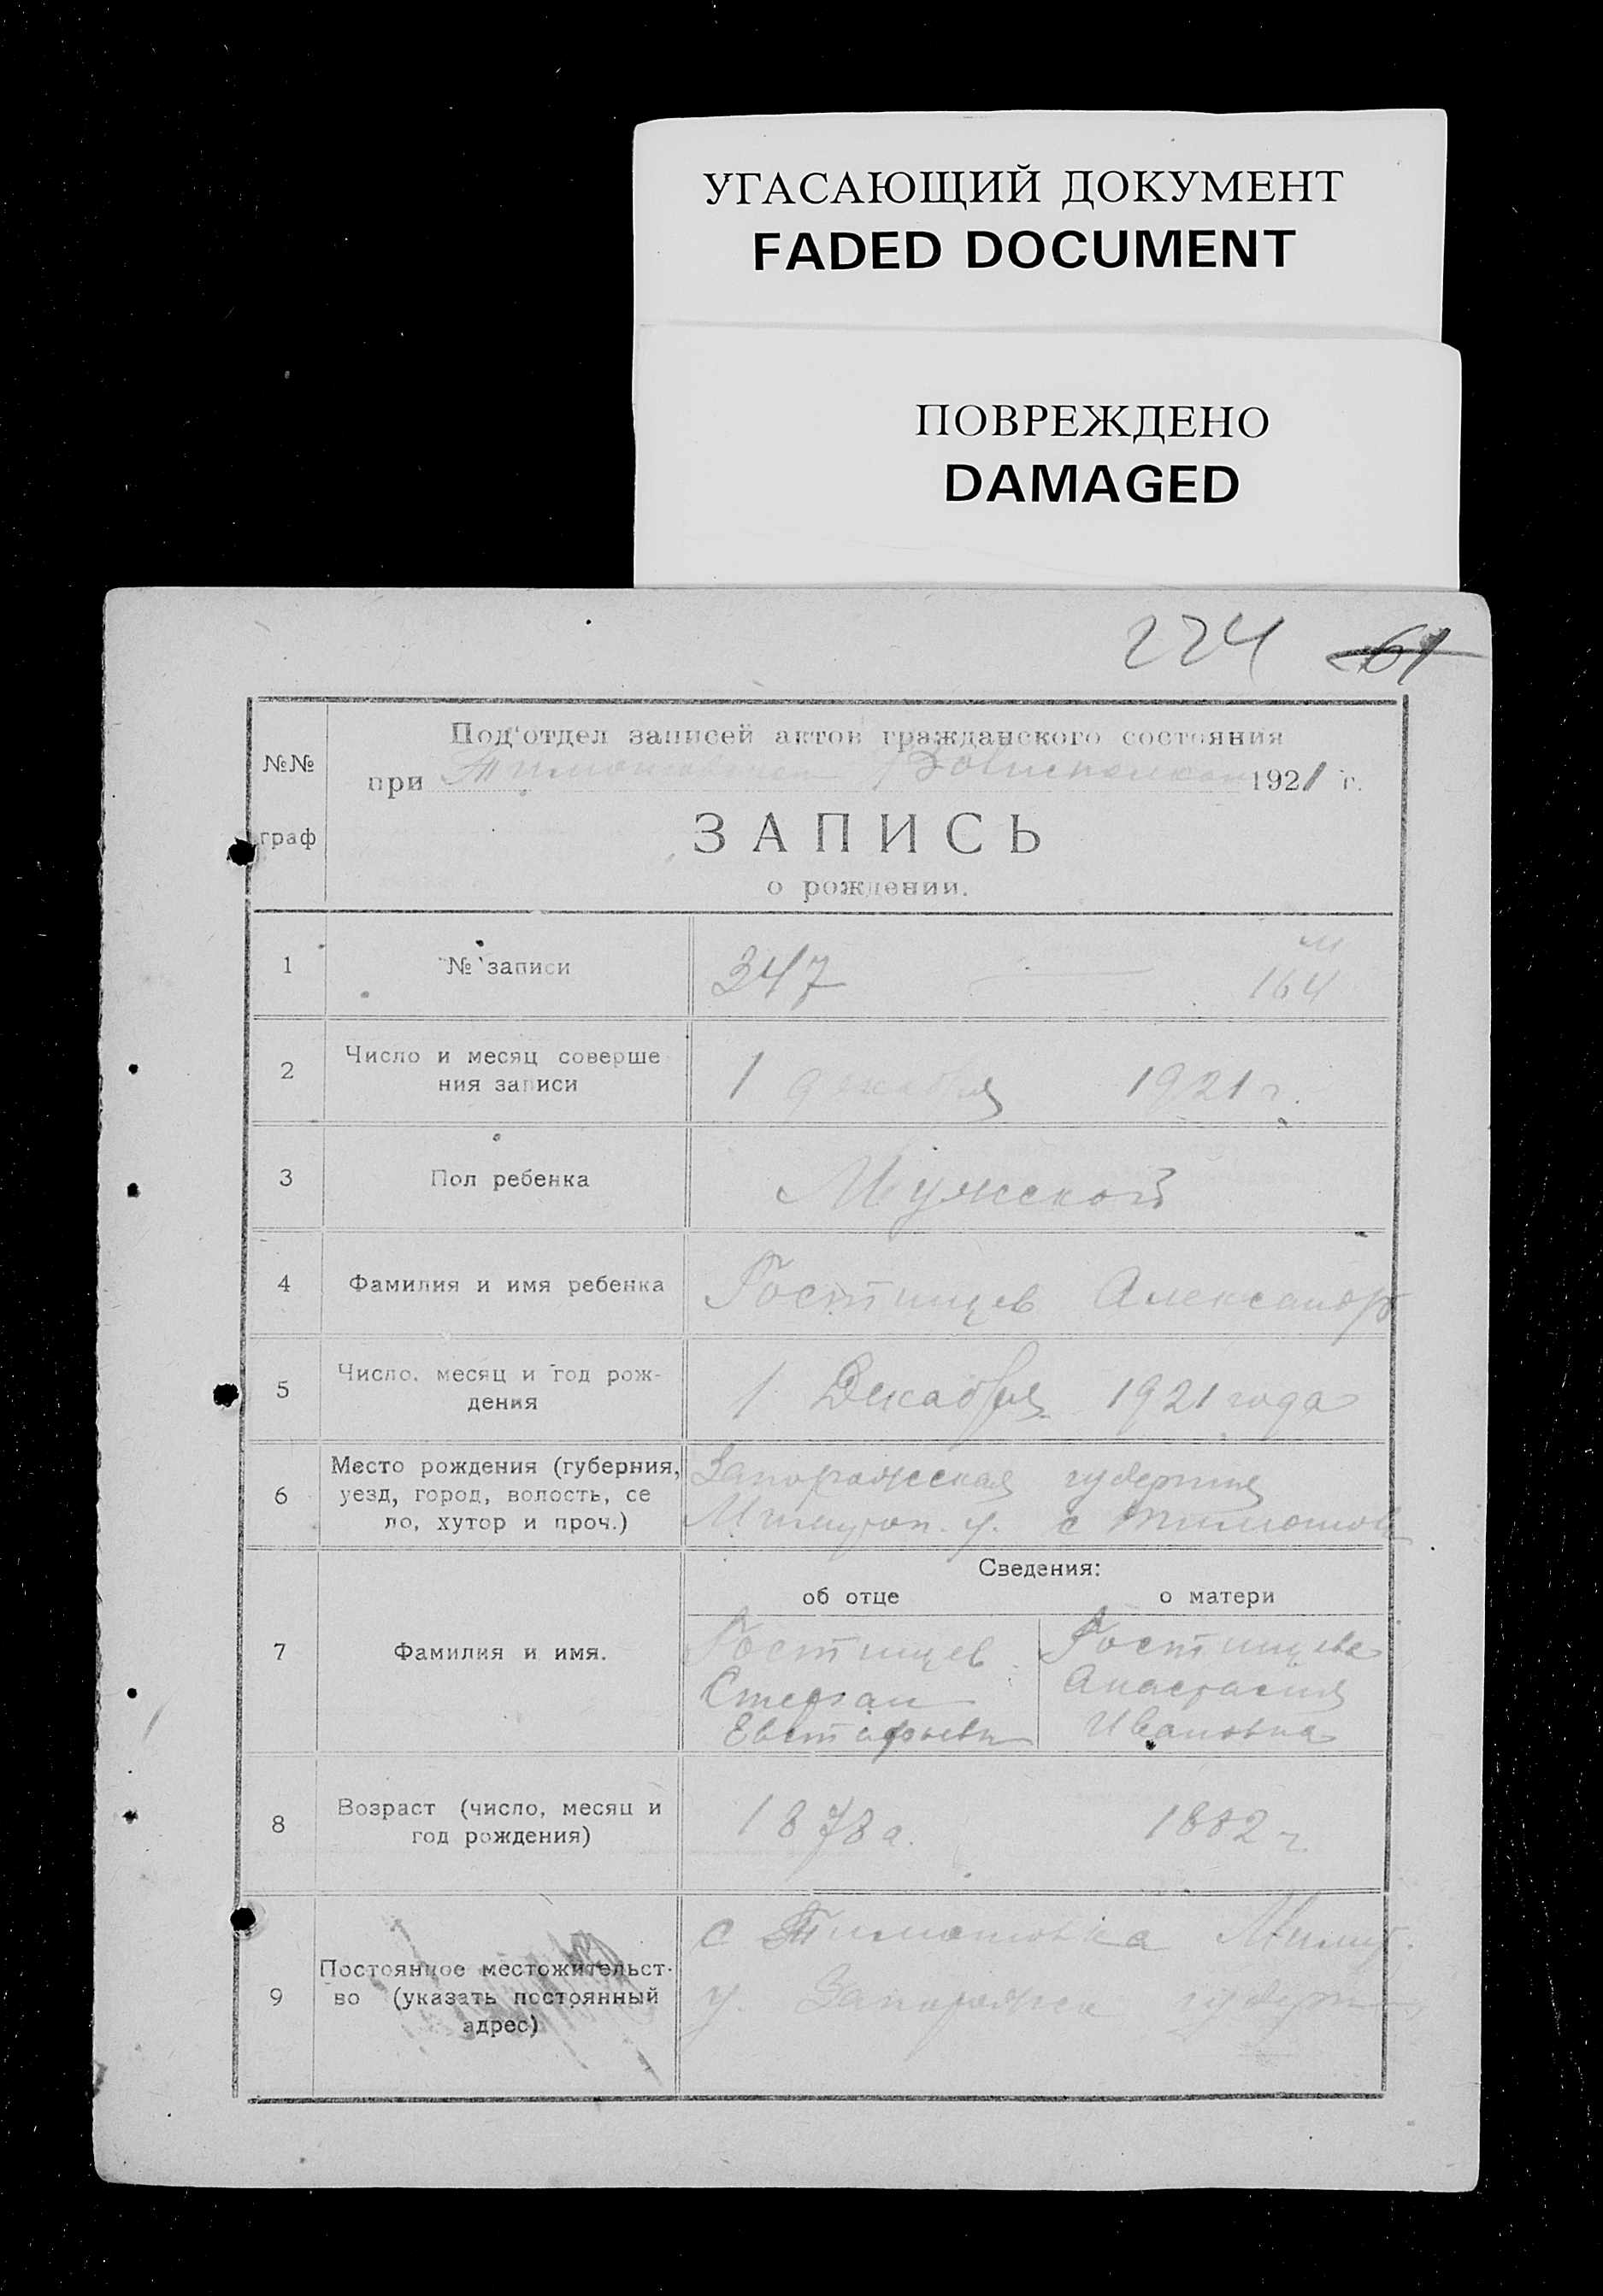 УГАСАЮЩИЙ ДОКУМЕНТ
FADED DOCUMENT
ПОВРЕЖДЕНО
DAMAGED
224 61
№№
граф
Под'отдел записей актов гражданского состояния
при Тимошовском Волисполком 1921 г.
ЗАПИСЬ
о рождении.
1 № записи 347 м
164
2 Число и месяц соверше
ния записи
1 декабря 1921 г.
3 Пол ребенка Мужской
4 Фамилия и имя ребенка Гостищев Александр
5 Число, месяц и год рож-
дения
1 Декабря 1921 года
6 Место рождения (губерния,
уезд, город, волость, се
ло, хутор и проч.)
Запорожская губерния
у. с Тимошов
Сведения:
об отце о матери
7 Фамилия и имя.
Гостищев Гостищева
Стефан Анастасия
Ивановна
8 Возраст (число, месяц и
год рождения)
1878 1882 г.
9 Постоянное местожительст-
во (указать постоянный
адрес)
с Тимошовка
у. Запорожск губерн